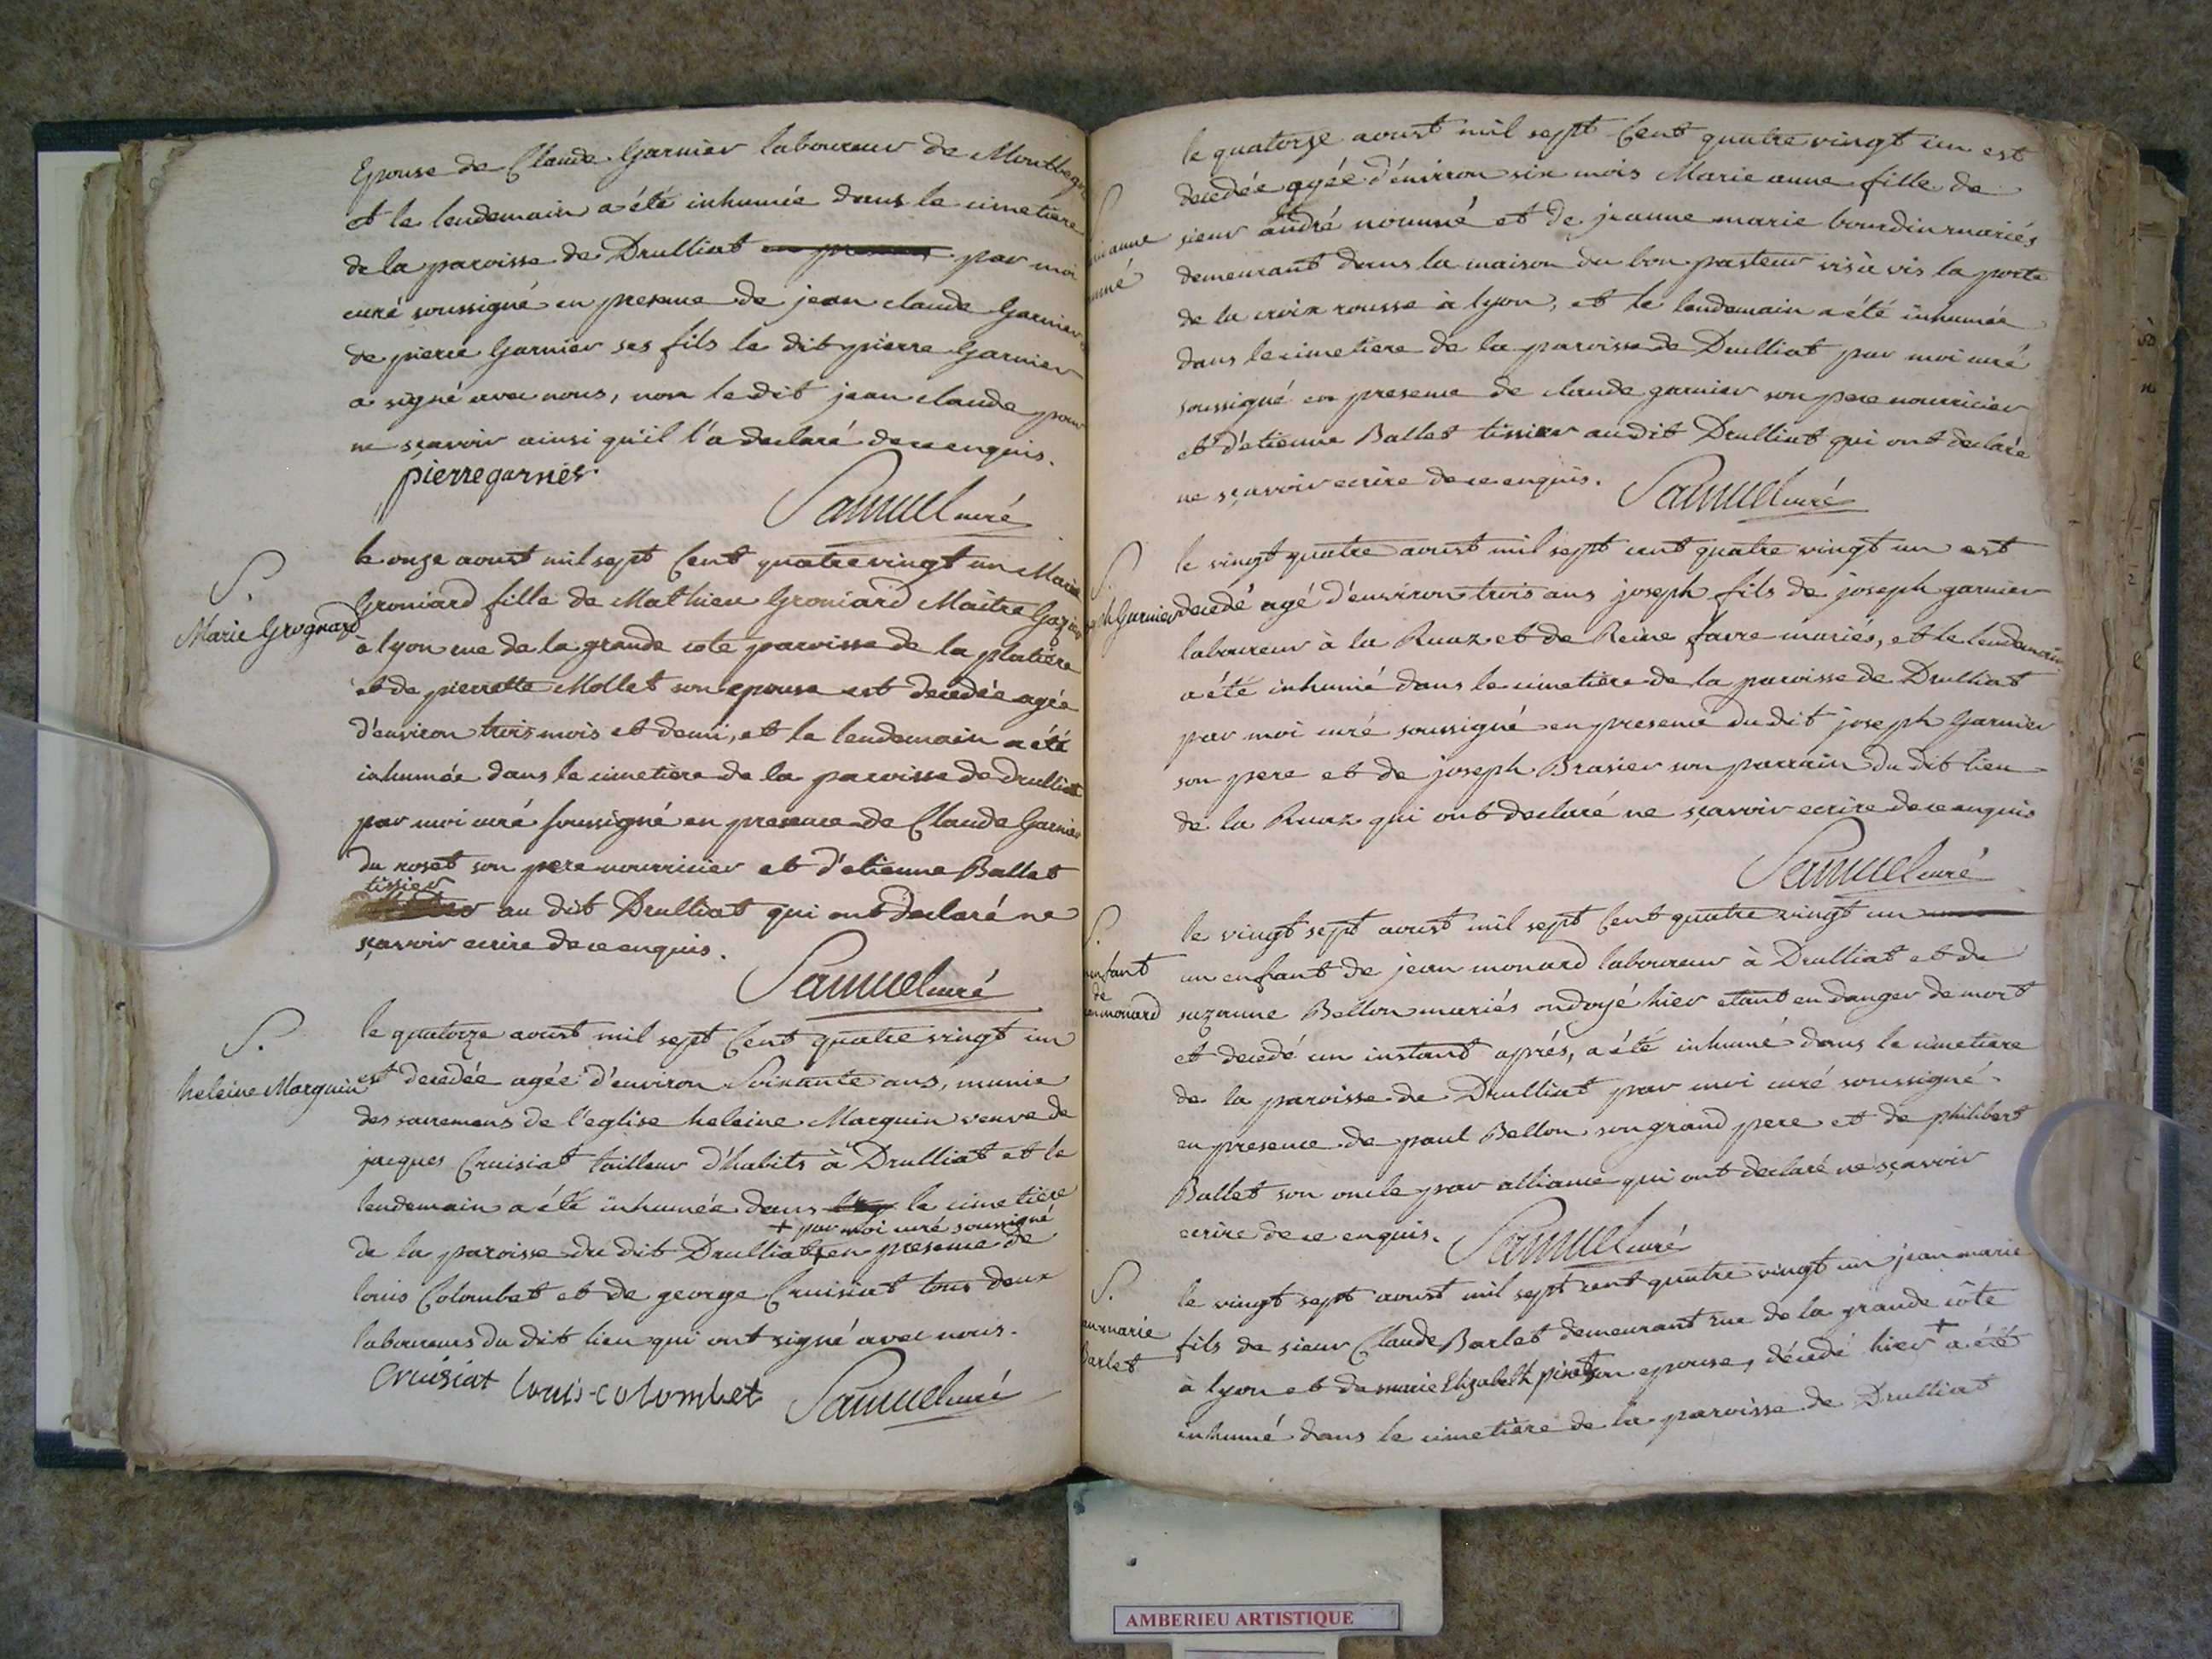 Epouse de Claude Garnier laboureur de
et le lendemain a été inhumée dans le cimetiere
de la paroisse de Drulliat par moi
curé soussigné en presence de jean claude Garnier
de pierre Garnier ses fils le dit pierre Garnier
a signé avec nous, non le dit jean claude pour
ne sçavoir ainsi qu'il l'a declaré de ce enquis.
pierre garnier
Samuel curé
S.
Marie Grognard
le onze aoust mil sept Cent quatre vingt un Marie
Groniard fille de Mathieu Groniard Maître
à lyon rue de la grande cote paroisse de la platiere
et de pierrette Mollet son epouse est decedée agée
d'environ trois mois et demi, et le lendemain a été
inhumée dans le cimetiere de la paroisse de Drulliat
par moi curé soussigné en presence de Claude Garnier
du roset son pere nourricier et d'etienne Ballet
tissier
au dit Drulliat qui ont declaré ne
sçavoir ecrire de ce enquis.
Samuel curé
S.
heleine Marguin
le quatorze aoust mil sept Cent quatre vingt un
est decedée agée d'environ Soixante ans, munie
des sacremens de l'eglise heleine Marguin veuve de
jacques Cruisiat tailleur d'habits à Drulliat et le
lendemain a été inhumée dans le cimetière
+ par moi curé soussigné
de la paroisse du dit Drulliat + en presence de
louis Colombet et de george Cruisiat tous deux
laboureurs du dit lieu qui ont signé avec nous.
Cruisiat louis-colombet Samuel curé
le quatorze aoust mil sept Cent quatre vingt un est
decedée agée d'environ six mois Marie anne fille de
sieur andré nommé et de jeanne marie bourdin mariés
demeurant dans la maison du bon pasteur vis à vis la porte
de la croix rousse à lyon, et le lendemain a été inhumée
dans le cimetiere de la paroisse de Drulliat par moi curé
soussigné en presence de claude garnier son pere nourricier
et d'etienne Ballet tissier audit Drulliat qui ont declaré
ne sçavoir ecrire de ce enquis. Samuel curé
S.
Garnier
le vingt quatre aoust mil sept cent quatre vingt un est
decedé agé d'environ trois ans joseph fils de joseph garnier
laboureur à la Ruaz et de Reine favre mariés, et le lendemain
a été inhumé dans le cimetière de la paroisse de Drulliat
par moi curé soussigné en presence du dit joseph Garnier
son pere et de joseph Brasier son parrain du dit lieu
de la Ruaz qui ont declaré ne sçavoir ecrire de ce enquis
Samuel curé
S.
enfant
de
monard
le vingt sept aoust mil sept Cent quatre vingt un
un enfant de jean monard laboureur à Drulliat et de
suzanne Bellon mariés ondoyé hier etant en danger de mort
et decedé un instant aprés, a été inhumé dans le cimetiere
de la paroisse de Drulliat par moi curé soussigné
en presence de paul Bellon son grand pere et de philibert
Ballet son oncle par alliance qui ont declaré ne sçavoir
ecrire de ce enquis. Samuel curé
S.
marie
Barlet
le vingt sept aoust mil sept cent quatre vingt un jean marie
fils de sieur Claude Barlet demeurant rue de la grande côte
à lyon et de marie Elizabeth son epouse, décedé hier + a été
inhumé dans le cimetière de la paroisse de Drulliat
AMBERIEU ARTISTIQUE